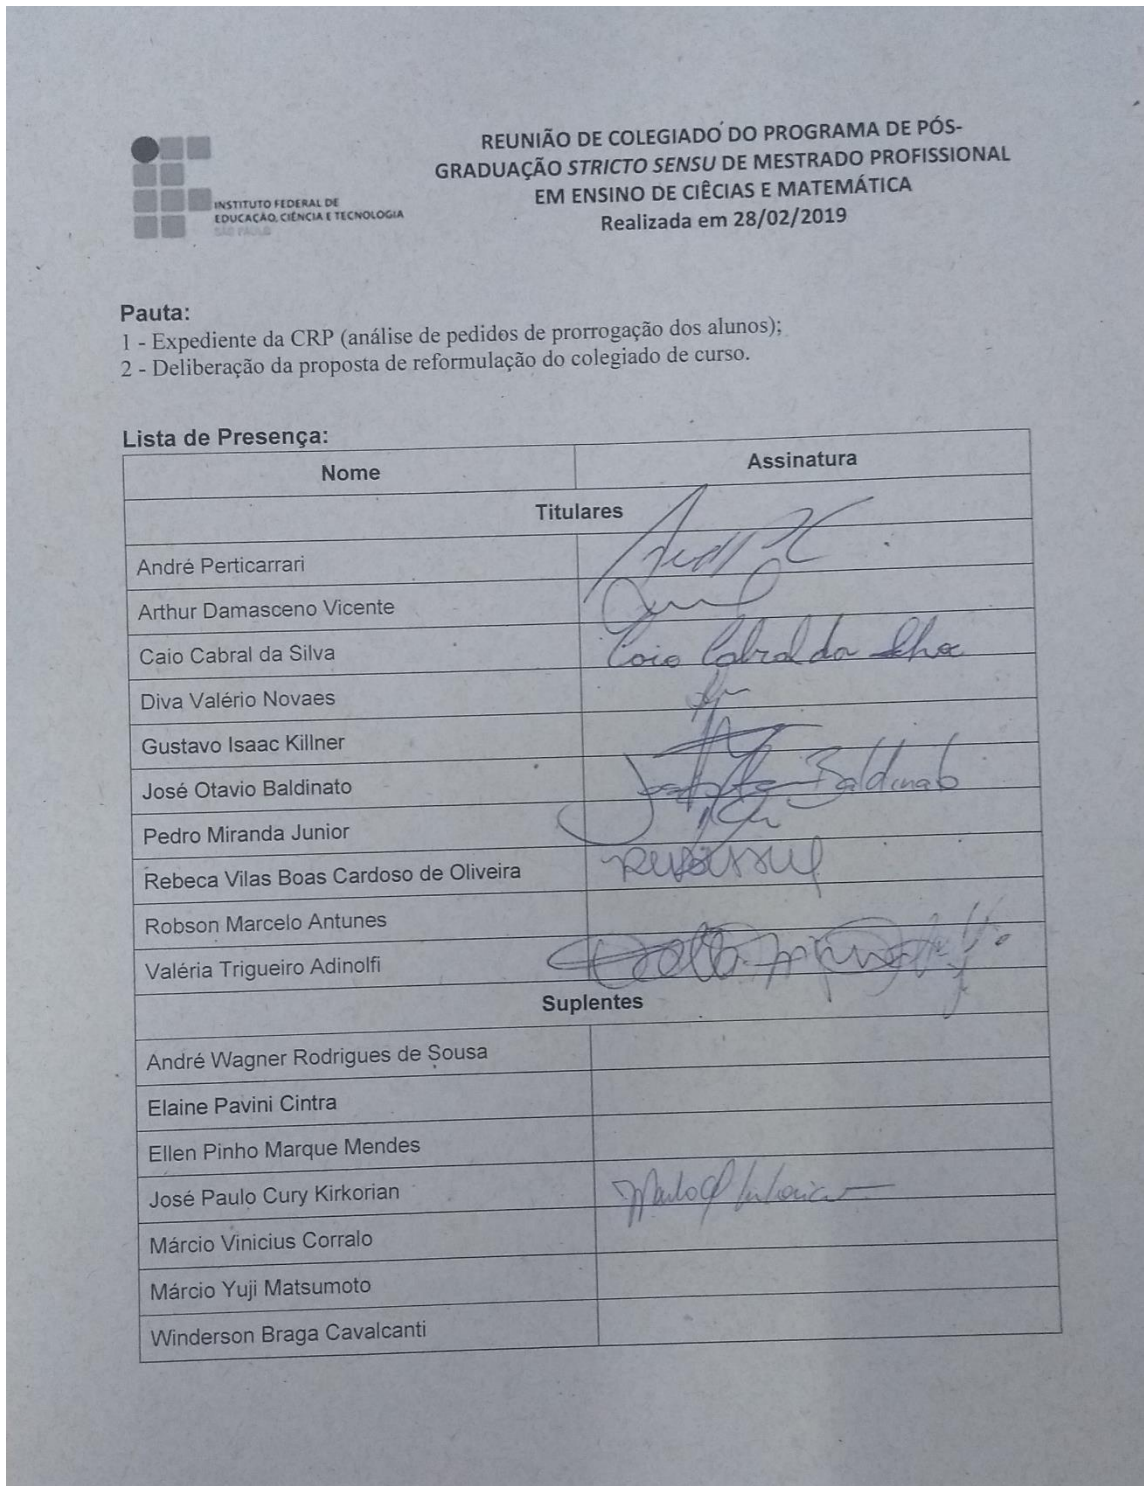 INSTITUTO FEDERAL DE
EDUCAÇÃO, CIÊNCIA E TECNOLOGIA
SÃO PAULO
REUNIÃO DE COLEGIADO DO PROGRAMA DE PÓS-
GRADUAÇÃO STRICTO SENSU DE MESTRADO PROFISSIONAL
EM ENSINO DE CIÊCIAS E MATEMÁTICA
Realizada em 28/02/2019
Pauta:
1 - Expediente da CRP (análise de pedidos de prorrogação dos alunos);
2 - Deliberação da proposta de reformulação do colegiado de curso.
Lista de Presença:
Nome Assinatura
Titulares
André Perticarrari
Arthur Damasceno Vicente
Caio Cabral da Silva Caio Cabral da Silva
Diva Valério Novaes
Gustavo Isaac Killner
José Otavio Baldinato Baldinato
Pedro Miranda Junior
Rebeca Vilas Boas Cardoso de Oliveira
Robson Marcelo Antunes
Valéria Trigueiro Adinolfi
Suplentes
André Wagner Rodrigues de Sousa
Elaine Pavini Cintra
Ellen Pinho Marque Mendes
José Paulo Cury Kirkorian
Márcio Vinicius Corralo
Márcio Yuji Matsumoto
Winderson Braga Cavalcanti